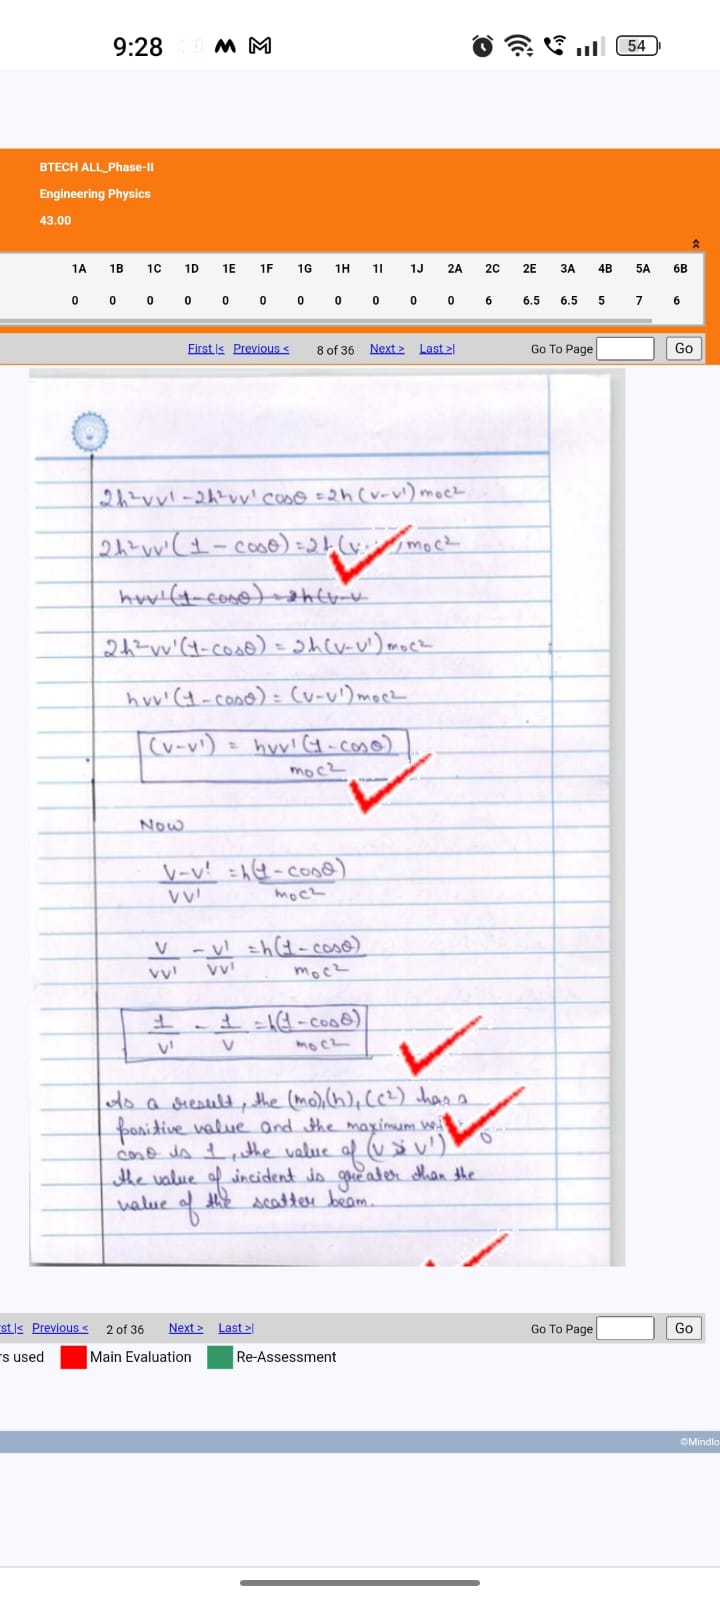 9:28
54
BTECH ALL_Phase-II
Engineering Physics
43.00
1A 1B 1C 1D 1E 1F 1G 1H 1I 1J 2A 2C 2E 3A 4B 5A 6B
0 0 0 0 0 0 0 0 0 0 0 6 6.5 6.5 5 7 6
First |< Previous < 8 of 36 Next > Last >| Go To Page Go
2h²νν' - 2h²νν' cosθ = 2h(ν-ν') m₀c²
2h²νν'(1 - cosθ) = 2h(ν m₀c²
hνν'(1-cosθ) = 2h(ν-ν
2h²νν'(1-cosθ) = 2h(ν-ν') m₀c²
hνν'(1-cosθ) = (ν-ν') m₀c²
(ν-ν') = hνν'(1-cosθ)
m₀c²
Now
ν-ν' = h(1-cosθ)
νν' m₀c²
ν - ν' = h(1-cosθ)
νν' νν' m₀c²
1 - 1 = h(1-cosθ)
ν' ν m₀c²
As a result, the (m₀),(h),(c²) has a
positive value and the maximum
cosθ is 1, the value of (ν > ν')
the value of incident is greater than the
value of the scatter beam.
rst |< Previous < 2 of 36 Next > Last >| Go To Page Go
rs used Main Evaluation Re-Assessment
©Mindlo